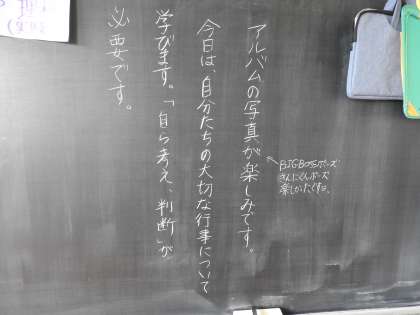 アルバムの写真が楽しみです。
BIGBOSSポーズ
きんにくんポーズ
今日は、自分たちの大切な行事について
学びます。「自ら考え、判断」が
必要です。